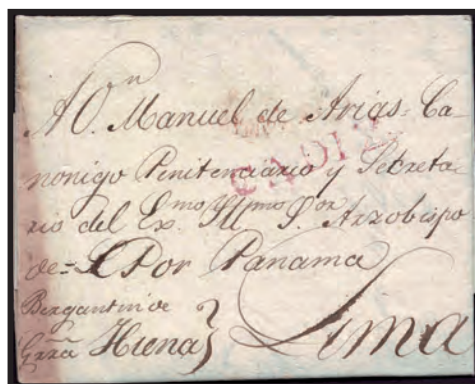 A Dn. Manuel de Arias Ca-
nonigo Penitenciario y Secreta-
rio del Exmo. Yllmo. Sor. Arzobispo
de = Por Panama
Bergantin de
Grra Hiena } Lima
CADIZ